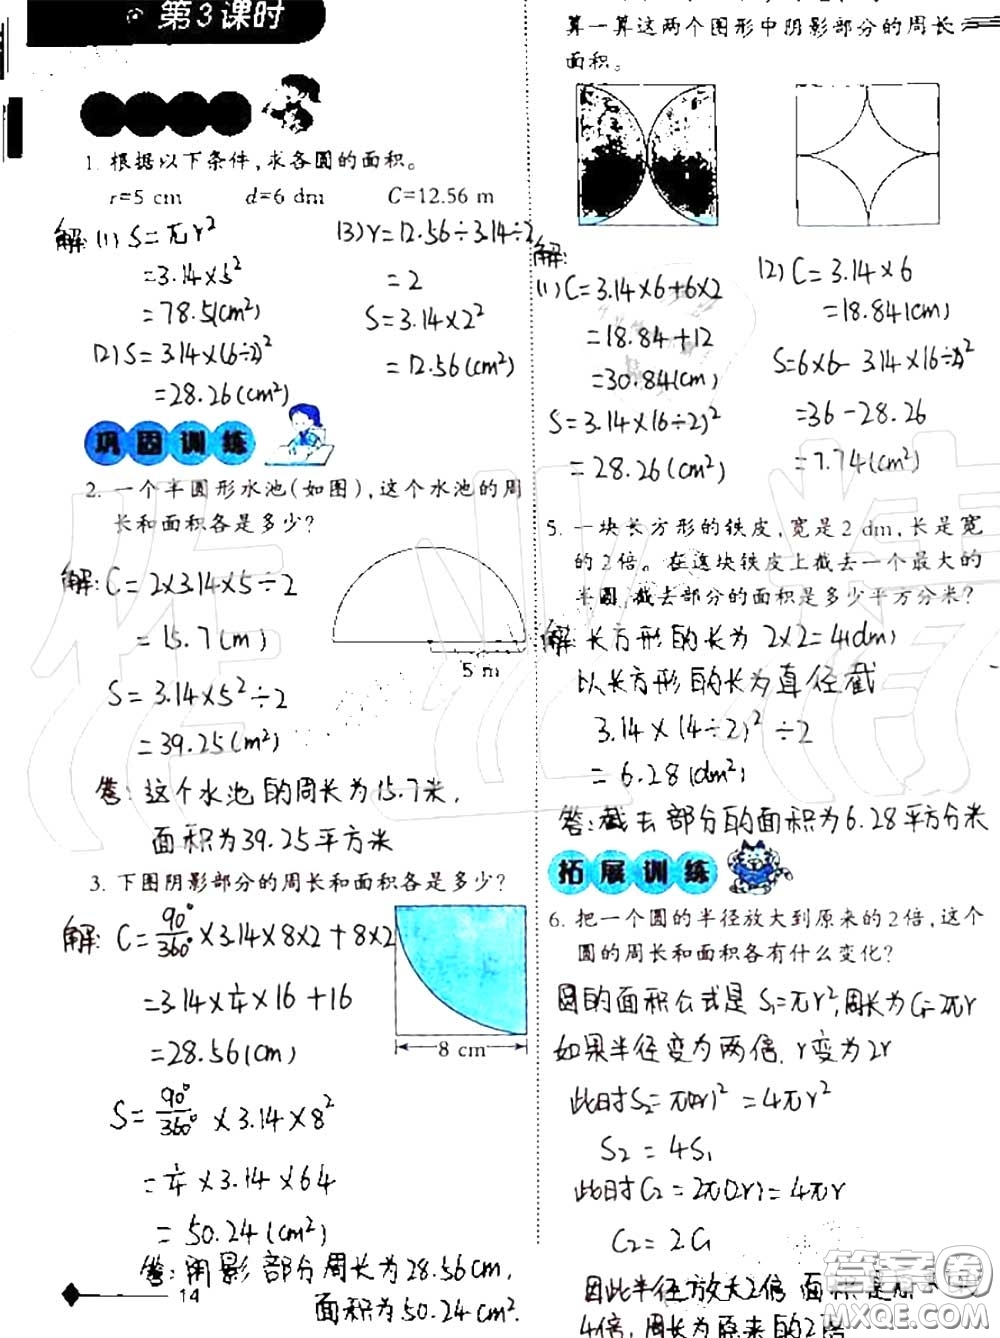 第3课时
1. 根据以下条件,求各圆的面积。
r=5 cm d=6 dm C=12.56 m
解:(1) S=πr²
=3.14×5²
=78.5(cm²)
(2) S=3.14×(6÷2)²
=28.26(cm²)
(3) r=12.56÷3.14÷2
=2
S=3.14×2²
=12.56(cm²)
巩固训练
2. 一个半圆形水池(如图),这个水池的周
长和面积各是多少?
解:C=2×3.14×5÷2
=15.7(m)
S=3.14×5²÷2
=39.25(m²)
5 m
答:这个水池的周长为15.7米,
面积为39.25平方米
3. 下图阴影部分的周长和面积各是多少?
解:C=90°/360°×3.14×8×2+8×2
=3.14×1/4×16+16
=28.56(cm)
S=90°/360°×3.14×8²
=1/4×3.14×64
=50.24(cm²)
8 cm
答:阴影部分周长为28.56cm,
面积为50.24cm².
14
算一算这两个图形中阴影部分的周长
面积。
解:
(1) C=3.14×6+6×2
=18.84+12
=30.84(cm)
S=3.14×(6÷2)²
=28.26(cm²)
(2) C=3.14×6
=18.84(cm)
S=6×6-3.14×(6÷2)²
=36-28.26
=7.74(cm²)
5. 一块长方形的铁皮,宽是2 dm,长是宽
的2倍。在这块铁皮上截去一个最大的
半圆,截去部分的面积是多少平方分米?
解:长方形的长为 2×2=4(dm)
以长方形的长为直径截
3.14×(4÷2)²÷2
=6.28(dm²)
答:截去部分的面积为6.28平方分米
拓展训练
6. 把一个圆的半径放大到原来的2倍,这个
圆的周长和面积各有什么变化?
圆的面积公式是 S₁=πr²,周长为C₁=2πr
如果半径变为两倍,r变为2r
此时S₂=π(2r)²=4πr²
S₂=4S₁
此时C₂=2π(2r)=4πr
C₂=2C₁
因此半径放大2倍 面积是原
4倍,周长为原来的2倍
作业精
答案圈
MXQE.COM